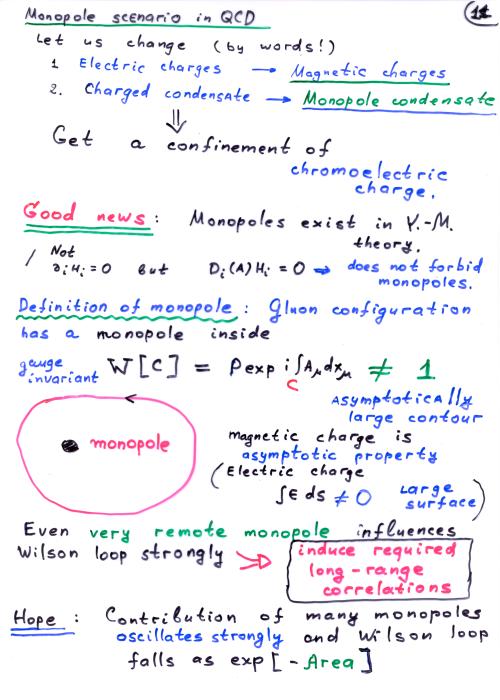 Monopole scenario in QCD
11
Let us change (by words!)
1 Electric charges → Magnetic charges
2. Charged condensate → Monopole condensate
⇓
Get a confinement of
chromoelectric
charge.
Good news: Monopoles exist in Y.-M.
theory.
/ Not
∂iHi = 0 but Di(A)Hi = 0 → does not forbid
monopoles.
Definition of monopole: Gluon configuration
has a monopole inside
gauge
invariant W[C] = Pexp i∫Aμdxμ ≠ 1
C
Asymptotically
large contour
monopole
magnetic charge is
asymptotic property
(Electric charge
∫E ds ≠ 0 Large
surface)
Even very remote monopole influences
Wilson loop strongly ⇒ induce required
long-range
correlations
Hope: Contribution of many monopoles
oscillates strongly and Wilson loop
falls as exp[-Area]